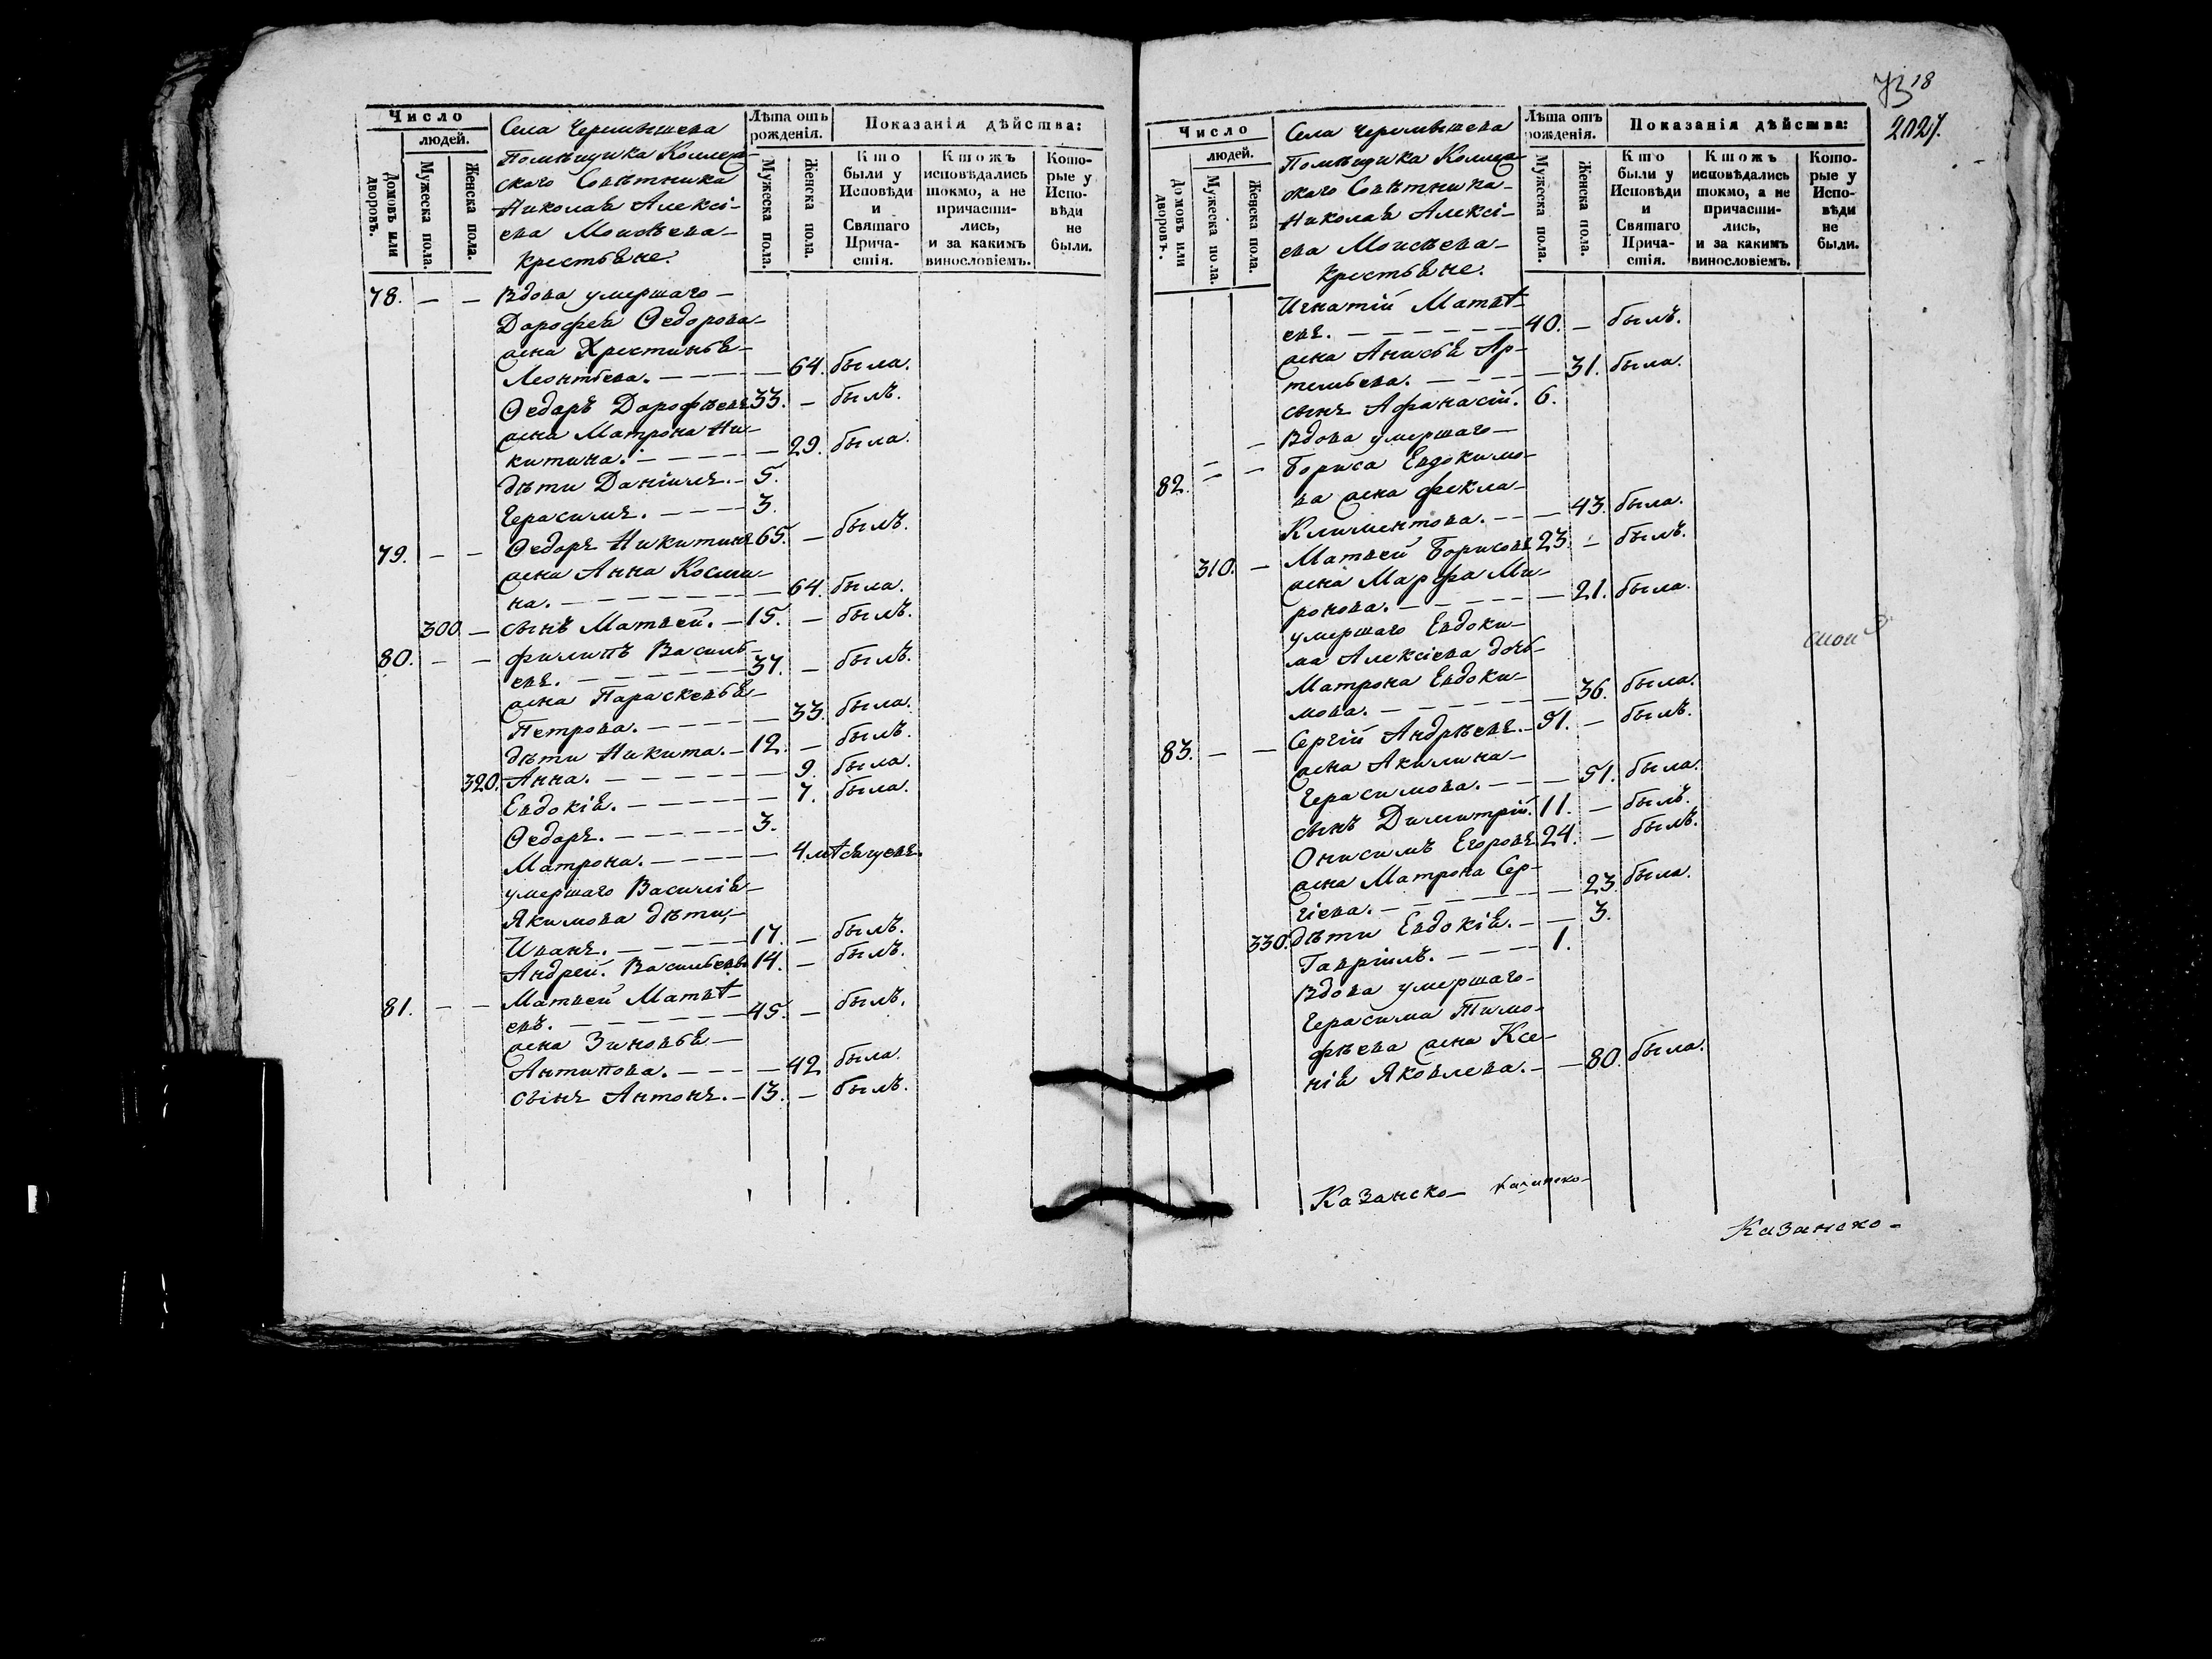 Число
людей.
Домовъ или дворовъ.
Мужеска пола.
Женска пола.
Села Черемышева
Помѣщика Коллеж-
скаго Совѣтника
Николая Алексі-
ева Моисѣева-
крестьяне.
Лѣта отъ рожденія.
Мужеска пола.
Женска пола.
Показанія дѣйства:
Кто были у Исповѣди и Святаго Прича-стія.
Ктожъ исповѣдались токмо, а не причасти-лись, и за какимъ винословіемъ.
Кото-рые у Испо-вѣди не были.
78. — — Вдова умершаго —
Дарофея Ѳедорова-
жена Христинья-
Леонтьева. — — — — 64. была.
Ѳедоръ Дарофѣевъ 33. — былъ.
жена Матрона Ни-
китина. — — — — 29. была.
дѣти Даніилъ. — 5.
Герасимъ. — — — — 3.
79. — — Ѳедоръ Никитинъ 65. — былъ.
жена Анна Косми-
на. — — — — — 64. была.
300 — сынъ Матвей. — 15. — былъ.
80. — — филипъ Василь-
евъ. — — — — — 37. — былъ.
жена Параскевья-
Петрова. — — — — 33. была.
дѣти Никита. — 12. — былъ.
320. Анна. — — — — — 9. была.
Евдокія. — — — — — 7. была.
Ѳедоръ. — — — — — 3.
Матрона. — — — — 4 мѣсяцевъ.
умершаго Василія-
Якимова дѣти,-
Иванъ. — — — — — 17. — былъ.
Андрей. Васильевы 14. — былъ.
81. — — Матвей Матвѣ-
евъ. — — — — — 45. — былъ.
жена Зиновья —
Антипова. — — — — 42 была.
сынъ Антонъ. — 13. — былъ.
73 18
2027.
Число
людей.
Домовъ или дворовъ.
Мужеска пола.
Женска пола.
Села Черемышева
Помѣщика Коллеж-
скаго Совѣтника-
Николая Алексі-
ева Моисѣева-
крестьяне.
Лѣта отъ рожденія.
Мужеска пола.
Женска пола.
Показанія дѣйства:
Кто были у Исповѣди и Святаго Прича-стія.
Ктожъ исповѣдались токмо, а не причасти-лись, и за какимъ винословіемъ.
Кото-рые у Испо-вѣди не были.
Игнатій Матвѣ-
евъ. — — — — — — 40. — былъ.
жена Анисья Ар-
темьева. — — — — — 31. была.
сынъ Афанасій. 6.
— Вдова умершаго —
82. — — Бориса Евдокимо-
ва жена фекла-
Климентова. — — — 43. была.
310. — Матвей Борисовъ 23. — былъ.
жена Марфа Ми-
ронова. — — — — — 21. была.
умершаго Евдоки-
ма Алексіева дочь-
Матрона Евдоки-
мова. — — — — — — 36. была.
83. — — Сергій Андрѣевъ. — 51. — былъ.
жена Акилина-
Герасимова. — — — 51. была.
сынъ Димитрій. 11. — былъ.
Онисимъ Егоровъ 24. — былъ.
жена Матрона Сер-
гіева. — — — — — — 23. была.
330. дѣти Евдокія. — — 3.
Гавріилъ. — — — 1.
Вдова умершаго-
Герасима Тимо-
фѣева жена Ксе-
нія Яковлева. — — 80. была.
Казанско- Казанско-
Казанско-